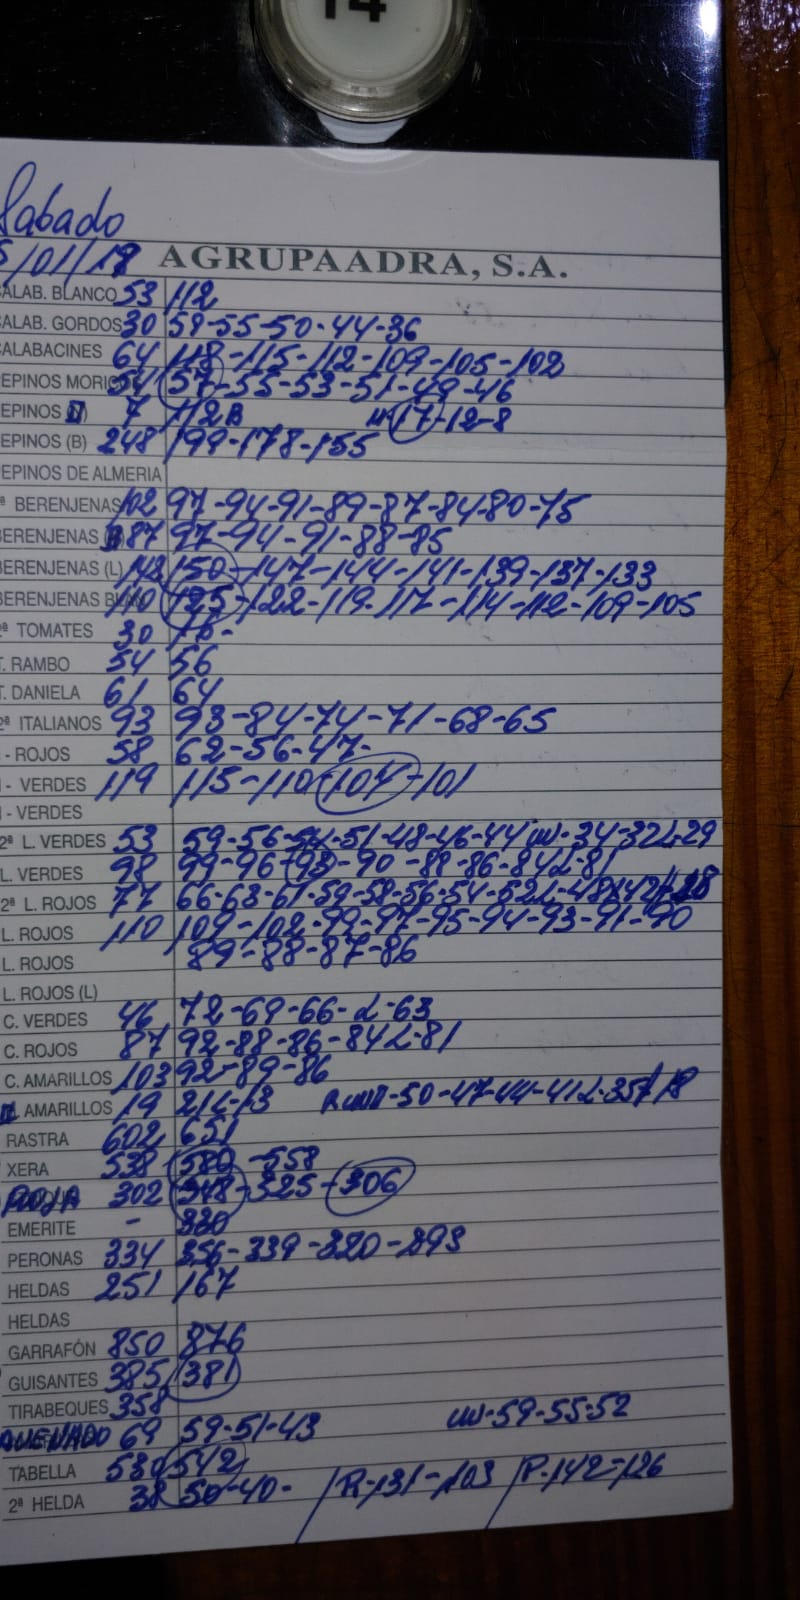 14
Sabado
5/01/19 AGRUPAADRA, S.A.
CALAB. BLANCO 53 112
CALAB. GORDOS 30 59-55-50-44-36
CALABACINES 64 118-115-112-109-105-102
PEPINOS 57-55-53-51-49-46
PEPINOS 7 112B 17-12-8
PEPINOS (B) 248 199-178-155
PEPINOS DE ALMERIA
BERENJENAS 102 97-94-91-89-87-84-80-75
BERENJENAS 87 97-94-91-88-85
BERENJENAS (L) 143 150-147-144-141-139-137-133
BERENJENAS 110 125-122-119-117-114-112-109-105
2ª TOMATES 30
T. RAMBO 54 56
T. DANIELA 61 64
2ª ITALIANOS 93 93-84-74-71-68-65
- ROJOS 58 62-56-47-
- VERDES 119 115-110-104-101
- VERDES
2ª L. VERDES 53 59-56-54-51-48-46-44 34-32L-29
L. VERDES 98 99-96-93-90-88-86-84L-81
2ª L. ROJOS 77 66-63-61-59-58-56-54-52L-48
L. ROJOS 110 109-102-99-97-95-94-93-91-90
L. ROJOS 89-88-87-86
L. ROJOS (L)
C. VERDES 46 72-69-66-L-63
C. ROJOS 87 92-88-86-84L-81
C. AMARILLOS 103 92-89-86
AMARILLOS 19 21L-13 50-47-44-41L-35/18
RASTRA 602 651
XERA 538 580-558
ROJA 302 348-325-306
EMERITE - 330
PERONAS 334 356-339-320-293
HELDAS 251 167
HELDAS
GARRAFÓN 850 876
GUISANTES 385 381
TIRABEQUES 358
69 59-51-43 59-55-52
TABELLA 580 542
2ª HELDA 38 50-40- /R-131-103 /P-142-126